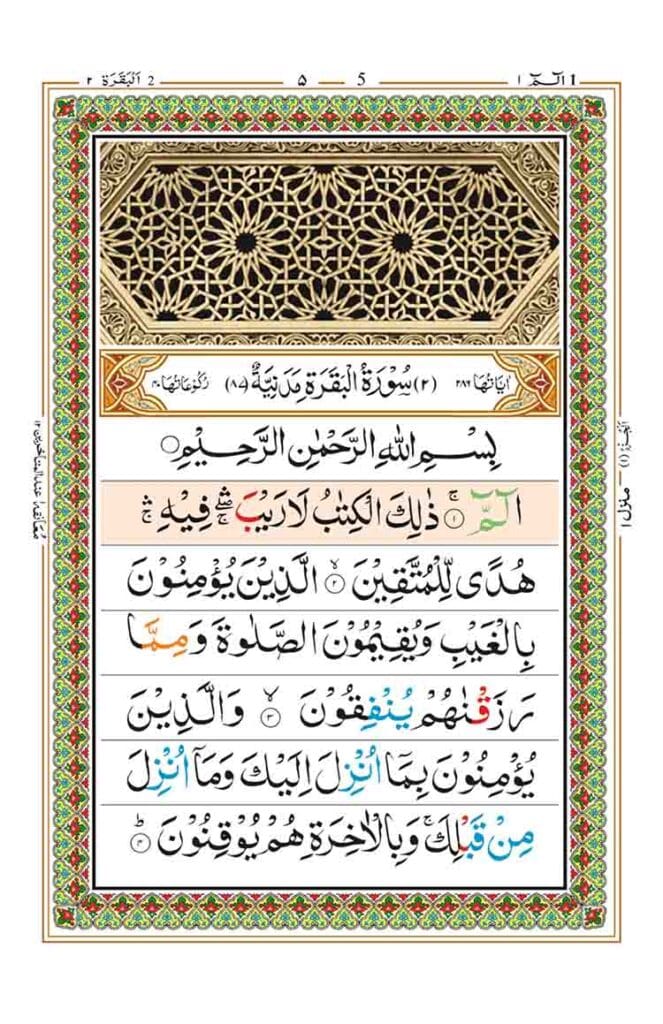 الٓمّٓ ١ 1 5 ۵ 2 اَلْبَقَرَة ٢
اٰيَاتُهَا ٢٨٦ (٢) سُوْرَةُ الْبَقَرَةِ مَدَنِيَّةٌ (٨٧) رُكُوْعَاتُهَا ٤٠
بِسْمِ اللّٰهِ الرَّحْمٰنِ الرَّحِيْمِ ○
الٓمّٓ ۚ ﴿١﴾ ذٰلِكَ الْكِتٰبُ لَا رَيْبَ ۛۚ فِيْهِ ۛۚ
هُدًى لِّلْمُتَّقِيْنَ ۙ ﴿٢﴾ الَّذِيْنَ يُؤْمِنُوْنَ
بِالْغَيْبِ وَيُقِيْمُوْنَ الصَّلٰوةَ وَمِمَّا
رَزَقْنٰهُمْ يُنْفِقُوْنَ ۙ ﴿٣﴾ وَالَّذِيْنَ
يُؤْمِنُوْنَ بِمَاۤ اُنْزِلَ اِلَيْكَ وَمَاۤ اُنْزِلَ
مِنْ قَبْلِكَ ۚ وَبِالْاٰخِرَةِ هُمْ يُوْقِنُوْنَ ؕ ﴿٤﴾
الجزء (١)
منزل ١
معانقة ١ عند المتاخرين ١٢